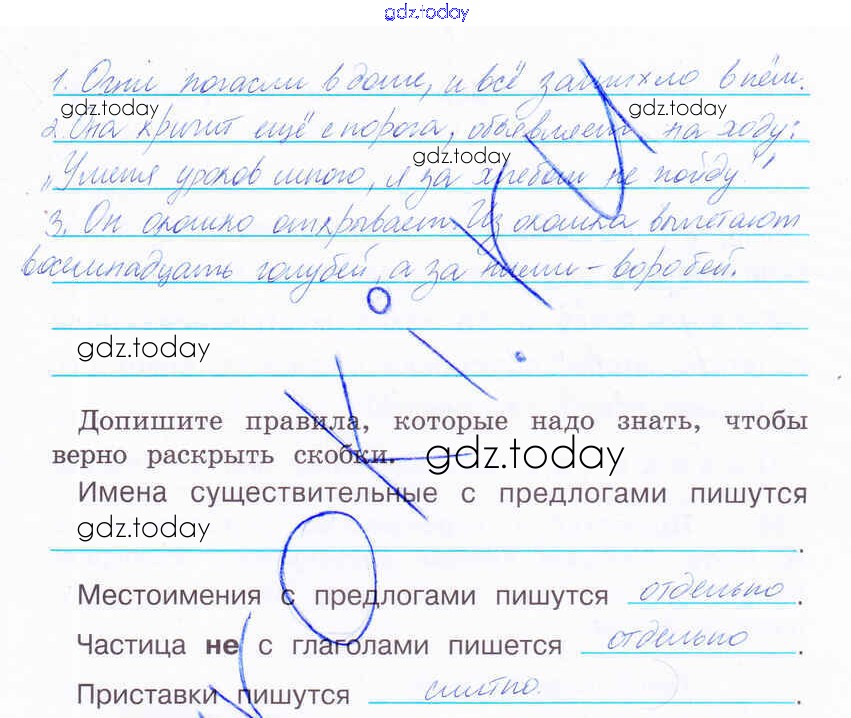 gdz.today
1. Огни погасли в доме, и всё затихло в нём.
gdz.today
gdz.today
2. Она кричит ещё с порога, объявляет на ходу:
gdz.today
„У меня уроков много, я за хлебом не пойду!"
3. Он окошко открывает. Из окошка вылетают
восемнадцать голубей, а за ними - воробей.
gdz.today
Допишите правила, которые надо знать, чтобы
верно раскрыть скобки.
gdz.today
Имена существительные с предлогами пишутся
gdz.today
.
Местоимения с предлогами пишутся отдельно.
Частица не с глаголами пишется отдельно.
Приставки пишутся слитно.